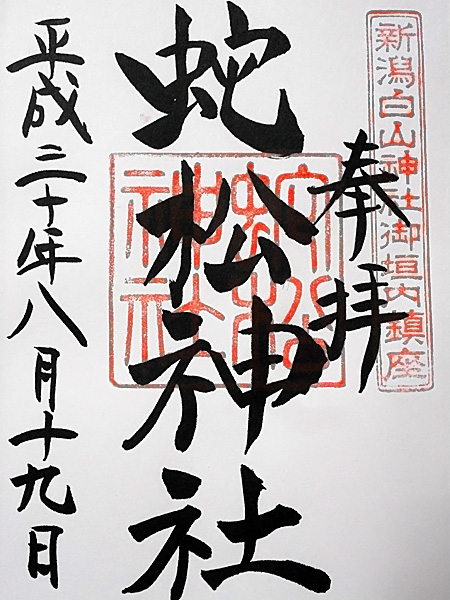 新潟白山神社御垣内鎮座
奉拝
蛇松神社
蛇松
神社
平成三十年八月十九日